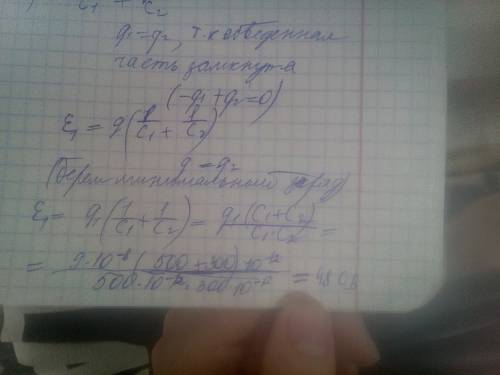 C₁ + C₂
q₁ = q₂, т.к обведенная
часть замкнута
(-q₁ + q₂ = 0)
ℰ₁ = q(1/C₁ + 1/C₂)
q = q₂
(берем минимальный заряд)
ℰ₁ = q₁(1/C₁ + 1/C₂) = q₁(C₁+C₂)/C₁·C₂ =
= 9·10⁻⁸(500+300)·10⁻¹²/500·10⁻¹²·300·10⁻¹² = 480 В